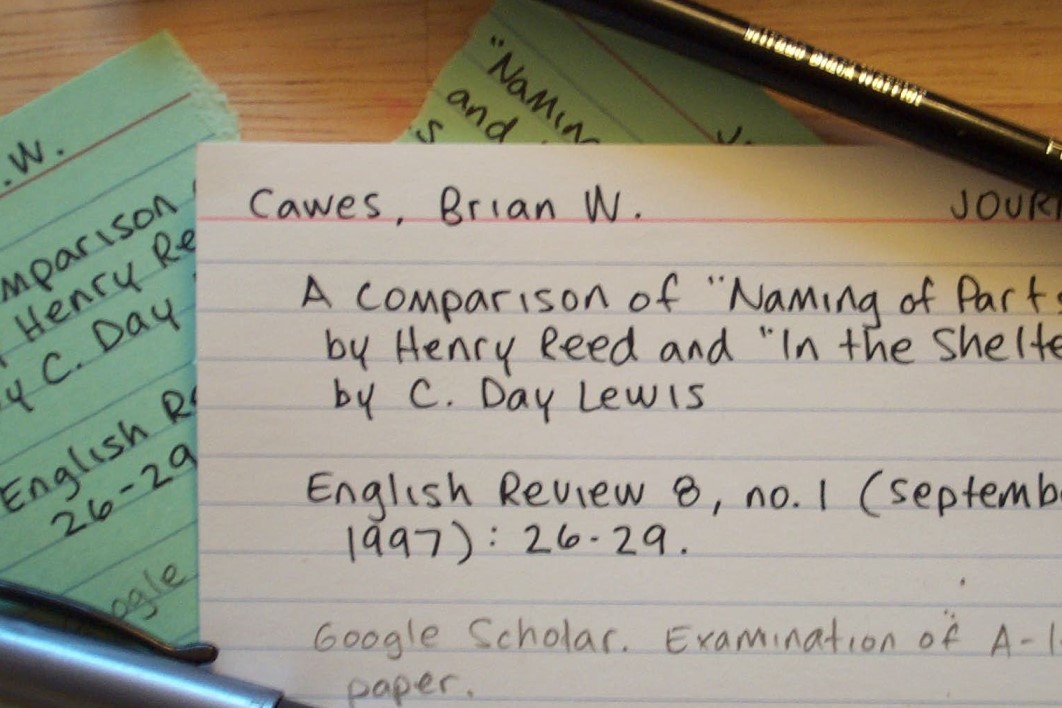 "Naming
and
s
.W.
mparison
Henry Re
y C. Day
English Re
26-29
ogle
Mirado Black Warrior
Cawes, Brian W.
JOUR
A comparison of "Naming of Part
by Henry Reed and "In the Shelte
by C. Day Lewis
English Review 8, no. 1 (Septemb
1997): 26-29.
Google Scholar. Examination of A-l
paper.